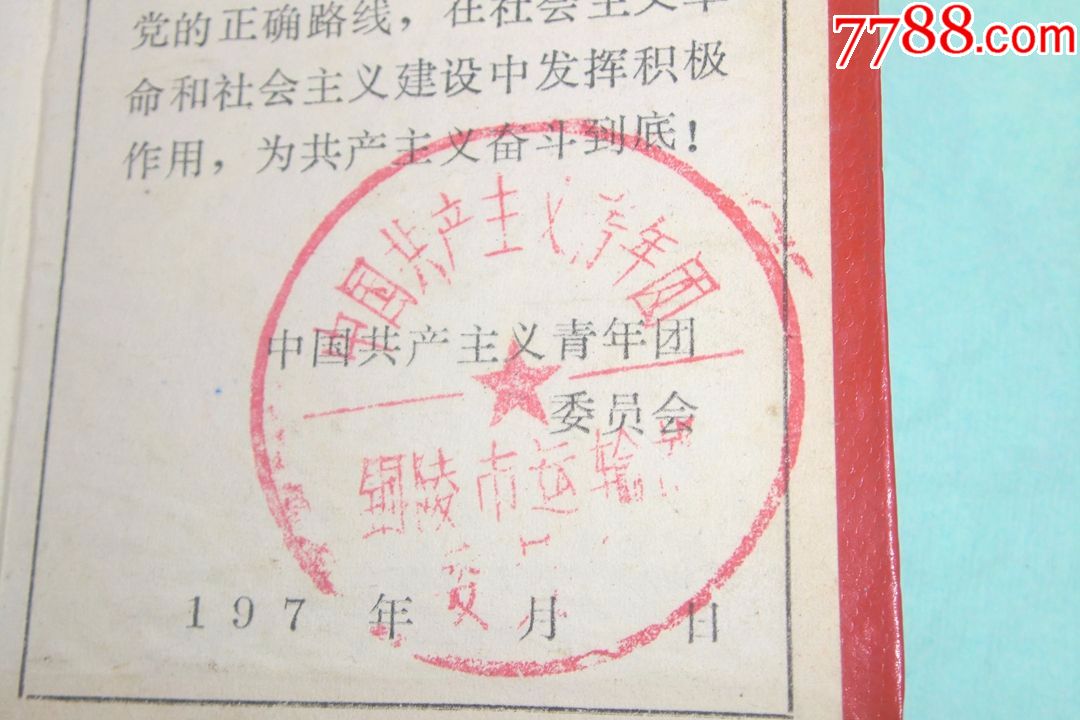 党的正确路线，在社会主义革
命和社会主义建设中发挥积极
作用，为共产主义奋斗到底！
中国共产主义青年团
中国共产主义青年团
委员会
铜陵市运输
委
197 年 月 日
7788.com